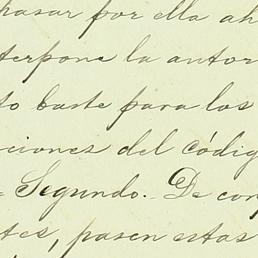 pasar por ella ah
terpone la autor
to baste para los
ciones del códig
Segundo.- De con
tes, pasen estas